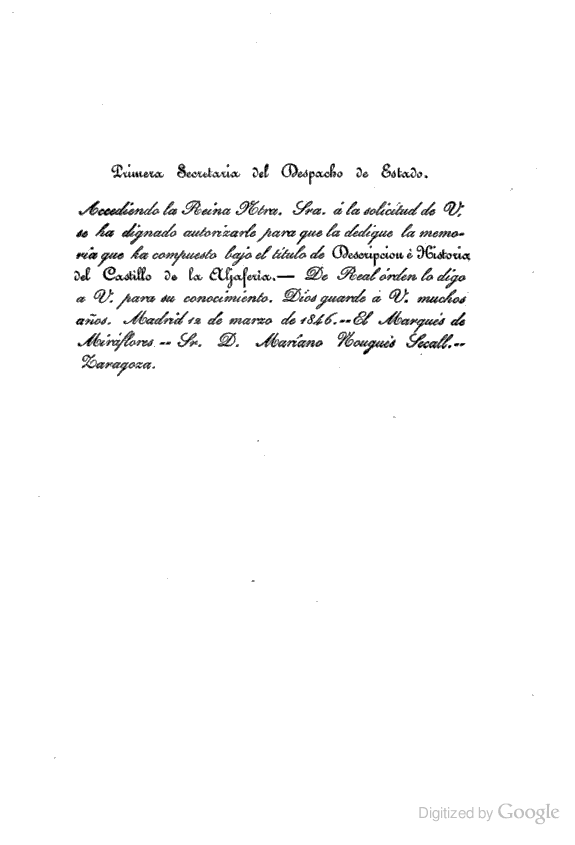 Primera Secretaria del Despacho de Estado.
Accediendo la Reina Ntra. Sra. á la solicitud de V.
se ha dignado autorizarle para que la dedique la memo-
ria que ha compuesto bajo el título de Descripcion é Historia
del Castillo de la Aljaferia.— De Real órden lo digo
a V. para su conocimiento. Dios guarde á V. muchos
años. Madrid 12 de marzo de 1846.--El Marqués de
Miráflores.-- Sr. D. Mariano Nougués Secall.--
Zaragoza.
Digitized by Google